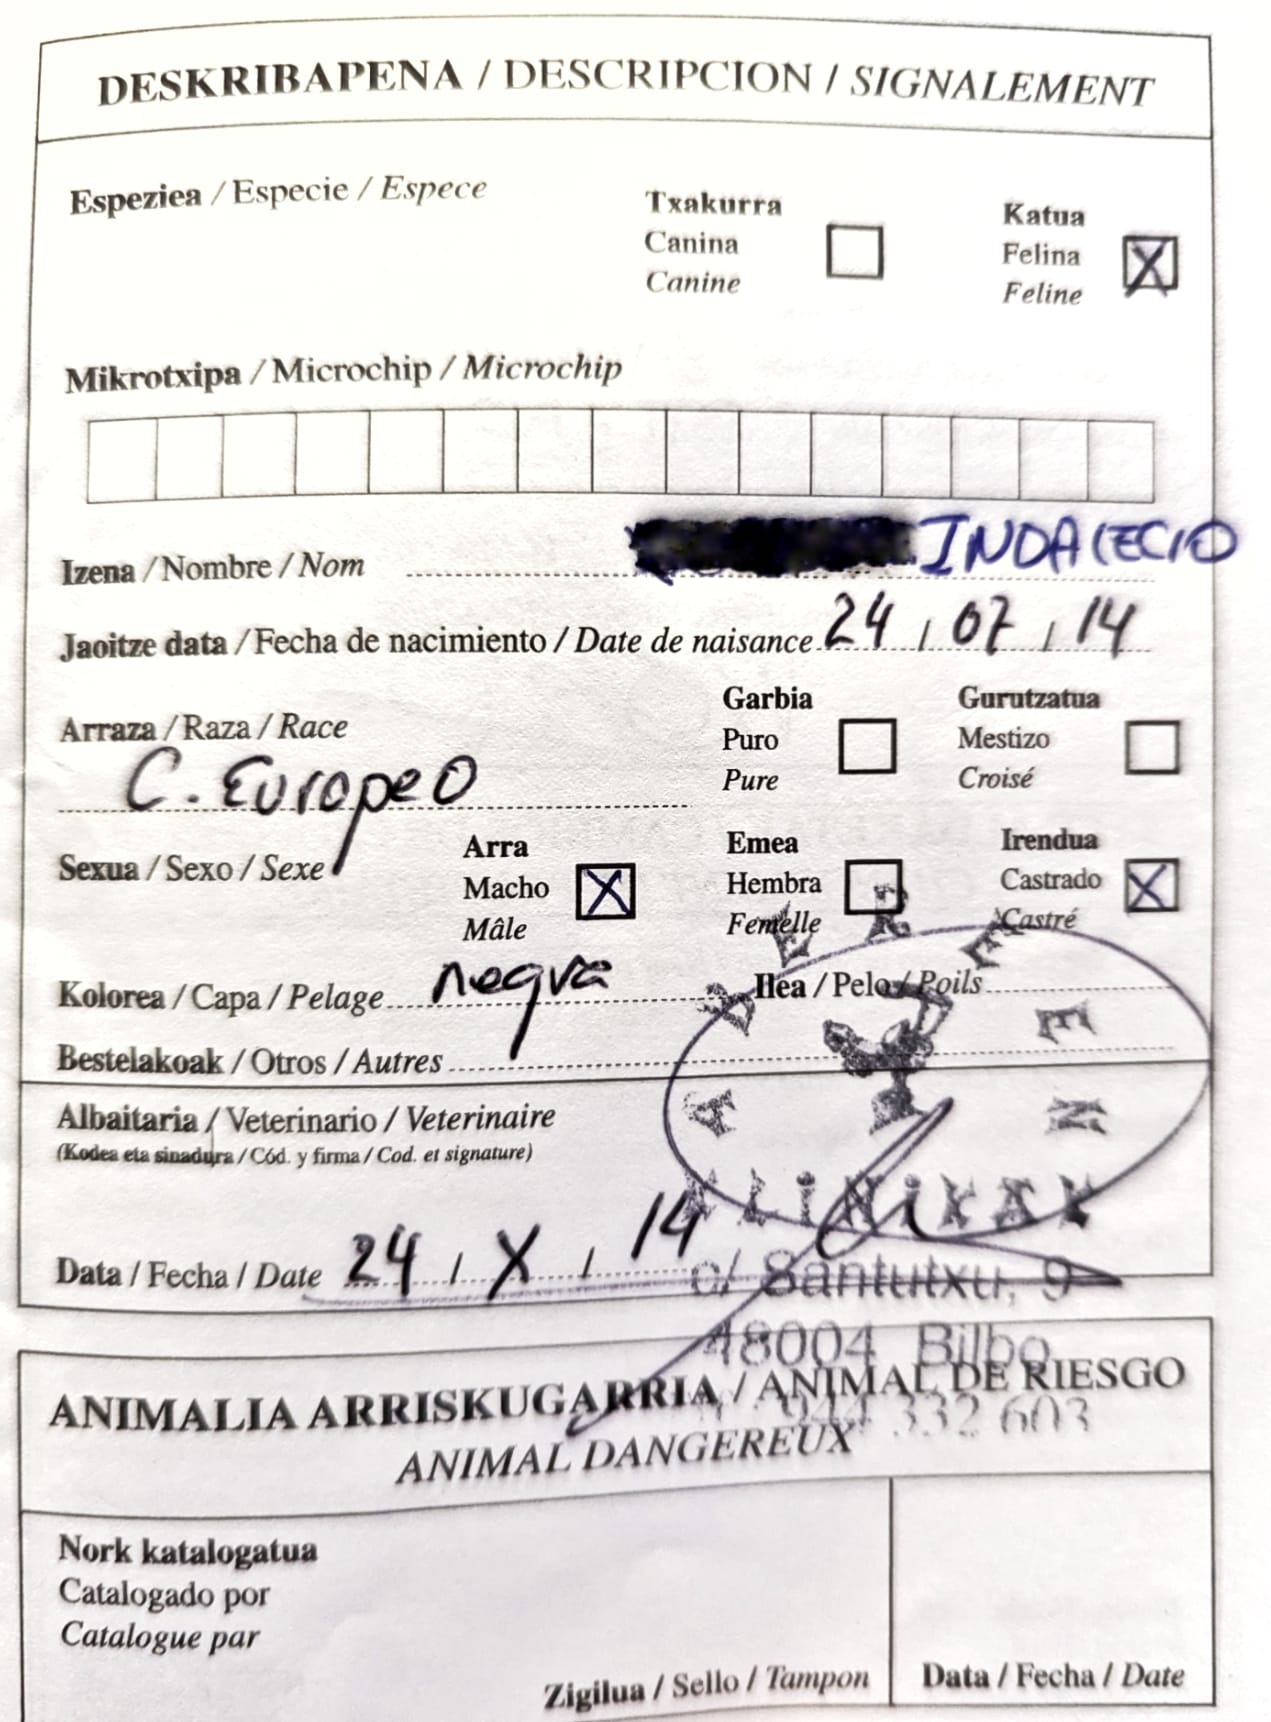 DESKRIBAPENA / DESCRIPCION / SIGNALEMENT
Espeziea / Especie / Espece
Txakurra
Canina
Canine
Katua
Felina X
Feline
Mikrotxipa / Microchip / Microchip
Izena / Nombre / Nom INDALECIO
Jaoitze data / Fecha de nacimiento / Date de naisance 24 / 07 / 14
Arraza / Raza / Race
C. Europeo
Garbia
Puro
Pure
Gurutzatua
Mestizo
Croisé
Sexua / Sexo / Sexe
Arra
Macho X
Mâle
Emea
Hembra
Femelle
Irendua
Castrado X
Castré
Kolorea / Capa / Pelage negra Ilea / Pelo / Poils
Bestelakoak / Otros / Autres
Albaitaria / Veterinario / Veterinaire
(Kodea eta sinadura / Cód. y firma / Cod. et signature)
KLINIKAK
Data / Fecha / Date 24 / X / 14
c/ Santutxu, 9
48004 Bilbo
944 332 603
ANIMALIA ARRISKUGARRIA / ANIMAL DE RIESGO
ANIMAL DANGEREUX
Nork katalogatua
Catalogado por
Catalogue par
Zigilua / Sello / Tampon
Data / Fecha / Date